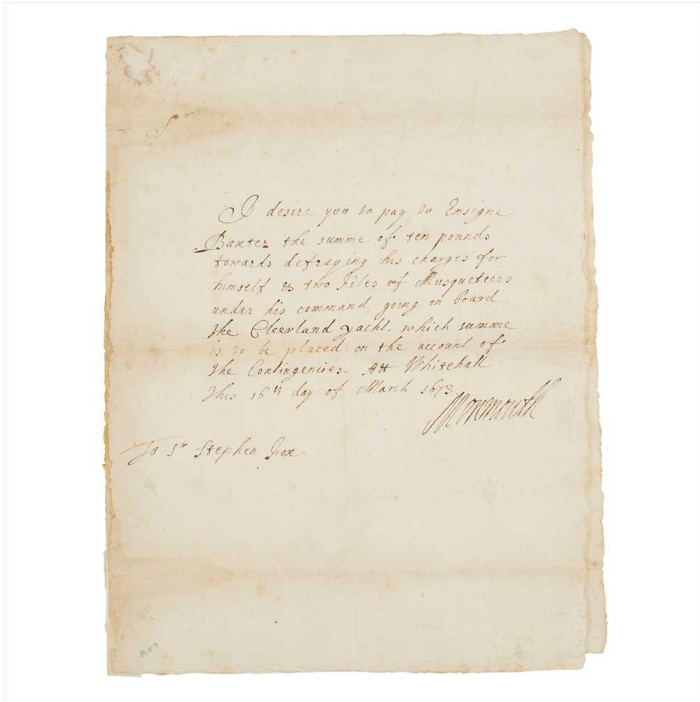 Sr
I desire you to pay to Ensigne
Banter the summe of ten pounds
towards defraying his charges for
himself & two Files of Musqueteers
under his command, going on board
the Cleevland yacht. which summe
is to be placed on the account of
the Contingencies. Att Whitehall
this 16th day of March 1673
Monmouth
To Sr Stephen Fox